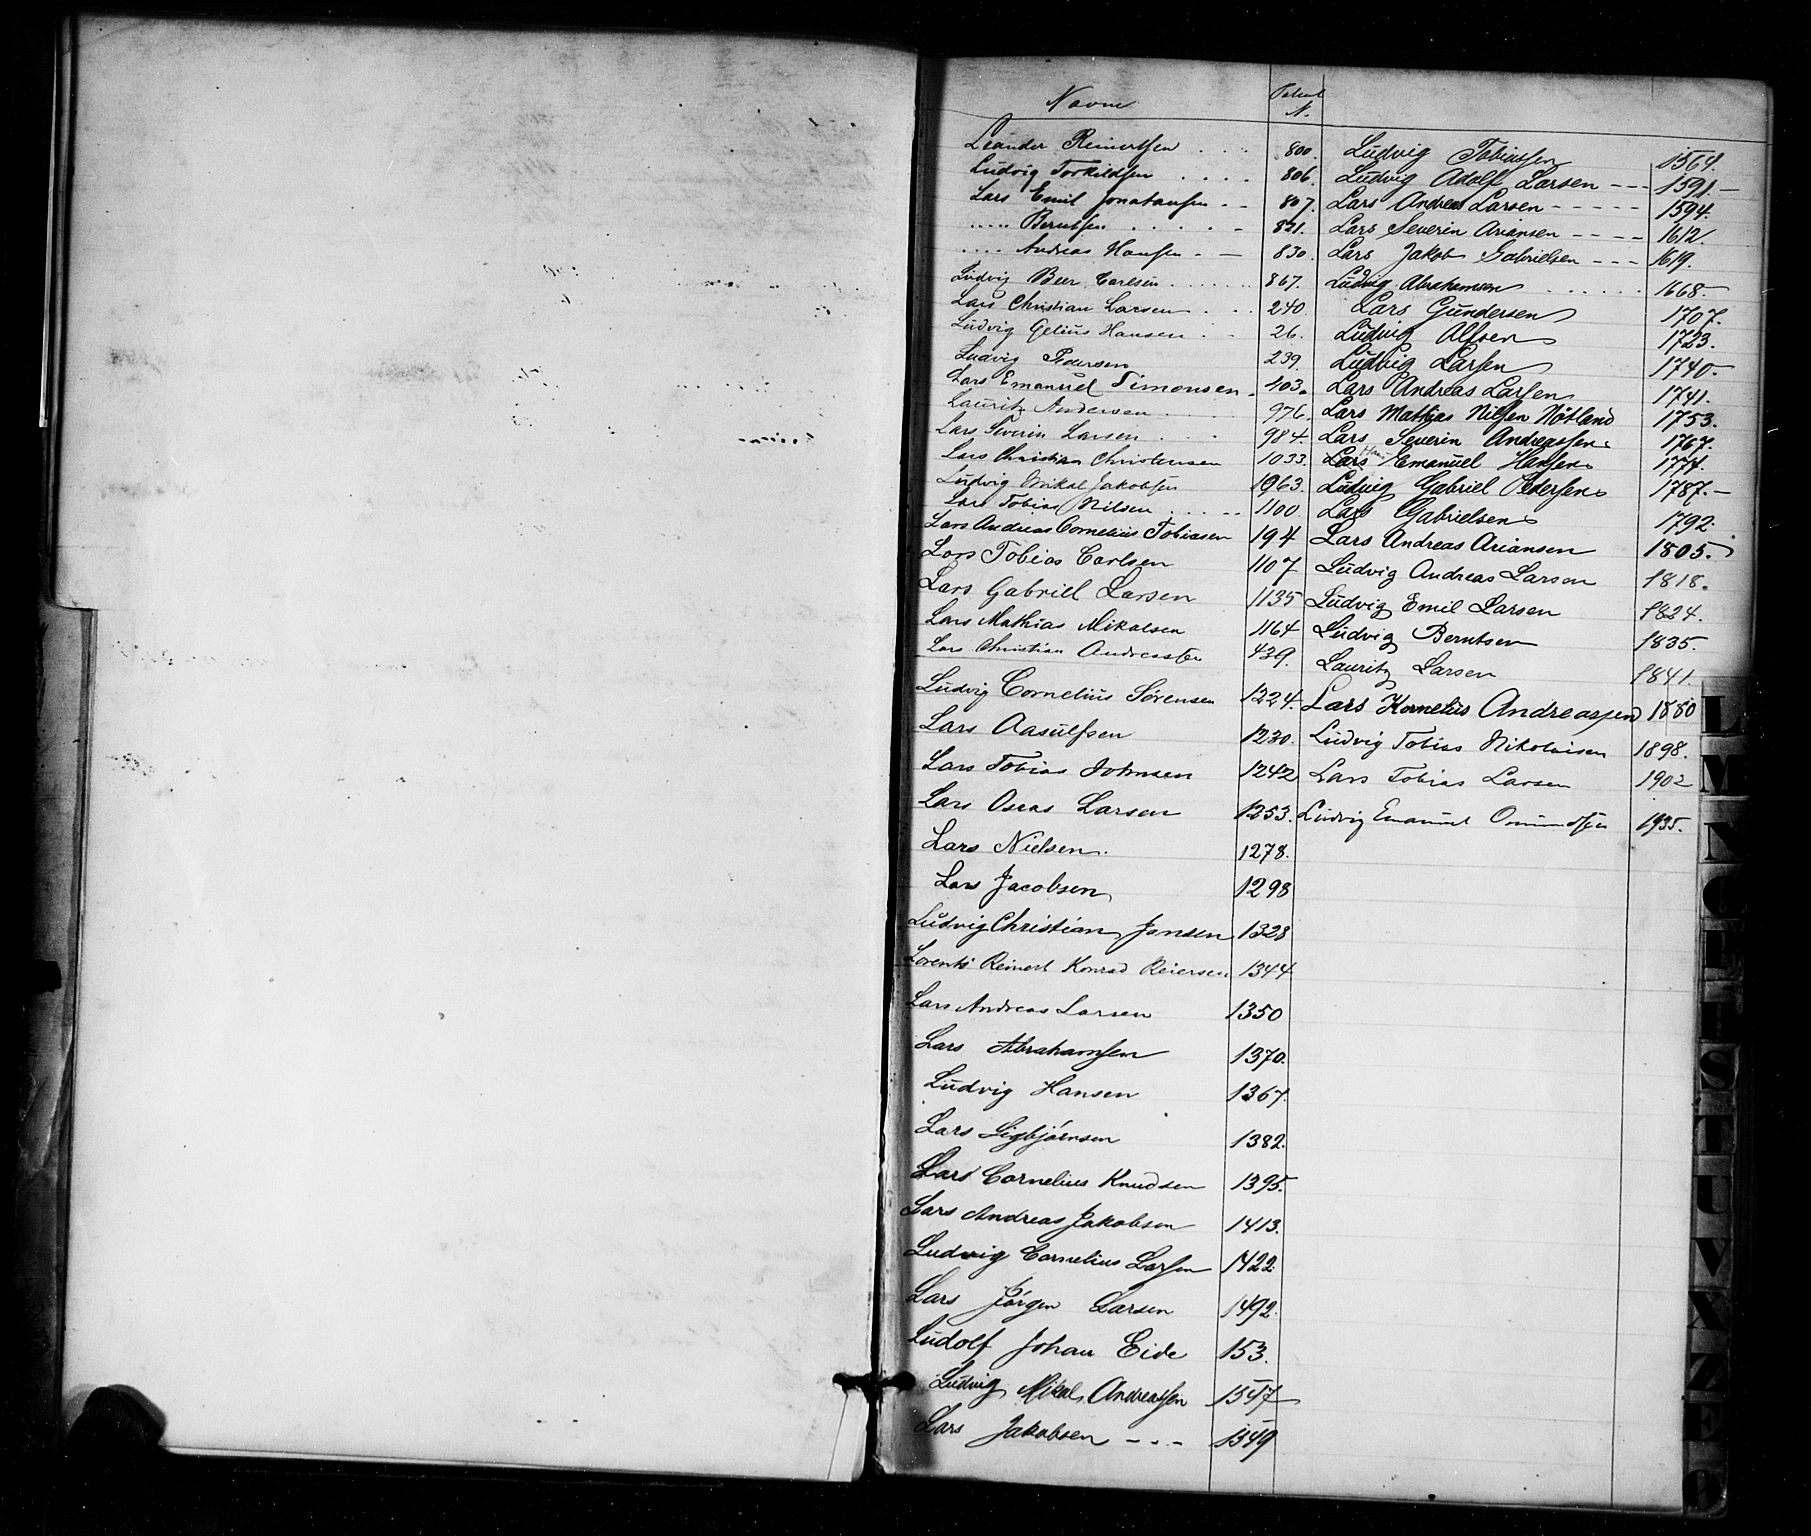 Navn
Patent
N.
Leander Reinertsen 800.
Ludvig Torkildsen 806.
Lars Emil Jonatansen 807.
" Berntsen 821.
" Andreas Hansen 830.
Ludvig Beer Carlsen 867.
Lars Christian Larsen 240.
Ludvig Gelius Hansen 26.
Ludvig Pedersen 239.
Lars Emanuel Timonsen 103.
Lauritz Andersen 976.
Lars Severin Larsen 984.
Lars Christian Christensen 1033.
Ludvig Mikal Jakobsen 1963.
Lars Tobias Nilsen 1100.
Lars Andreas Cornelius Tobiasen 194
Lars Tobias Carlsen 1107
Lars Gabriel Larsen 1135
Lars Mathias Mikalsen 1164
Lars Christian Andreassen 439.
Ludvig Cornelius Sørensen 1224.
Lars Aasulfsen 1230.
Lars Tobias Johnsen 1242
Lars Oseas Larsen 1253.
Lars Nielsen. 1278.
Lars Jacobsen 1298
Ludvig Christian Jansen 1328
Lorents Reinert Konrad Reiersen 1344
Lars Andreas Larsen 1350
Lars Abrahamsen 1370.
Ludvig Hansen 1367.
Lars Sigbjørnsen 1382.
Lars Cornelius Knudsen 1395.
Lars Andreas Jakobsen 1413.
Ludvig Cornelius Larsen 1422
Lars Jørgen Larsen 1492.
Ludolf Johan Eide 153.
Ludvig Mikal Andreassen 1547
Lars Jakobsen 1549
Ludvig Tobiassen 1564.
Ludvig Adolf Larsen 1591.
Lars Andreas Larsen 1594.
Lars Severin Ariansen 1612.
Lars Jakob Gabrielsen 1619.
Ludvig Abrahamsen 1668.
Lars Gundersen 1707.
Ludvig Alfsen 1723.
Ludvig Larsen 1740.
Lars Andreas Larsen 1741.
Lars Mathias Nilsen Nötland 1753.
Lars Severin Andreassen 1767.
Lars Hans Emanuel Hansen 1774.
Ludvig Gabriel Pedersen 1787.
Lars Gabrielsen 1792.
Lars Andreas Ariansen 1805.
Ludvig Andreas Larsen 1818.
Ludvig Emil Larsen 1824.
Ludvig Berntsen 1835.
Lauritz Larsen 1841.
Lars Kornelius Andreassen 1880
Ludvig Tobias Nikolaisen 1898.
Lars Tobias Larsen 1902
Ludvig Emanuel Omundsen 1935.
L
M
N
S
T
U
V
X
Z
Ø